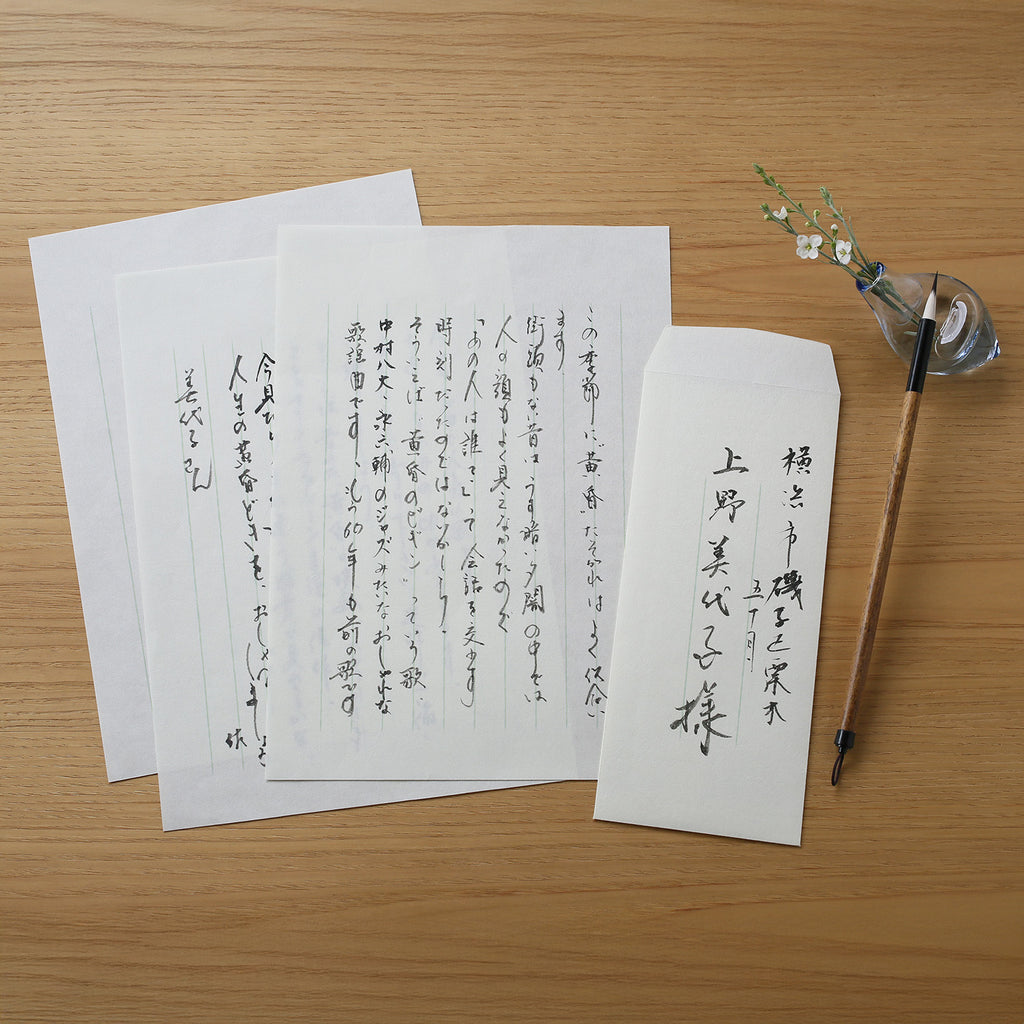 この季節に“黄昏”たそがれはよく似合い
ます
街頭もない昔はうす暗い夕闇の中では
人の顔もよく見えなかったので
「あの人は誰？」って会話を交わす
時刻だったのではないかしら、
そういえば“黄昏のビギン”っていう歌
中村八大・永六輔のジャズみたいなおしゃれな
歌謡曲です、もう60年も前の歌です
今見
人生の黄昏どきを、おしゃれに
美代子さん
横浜市磯子区栗木
五丁目
上野美代子様